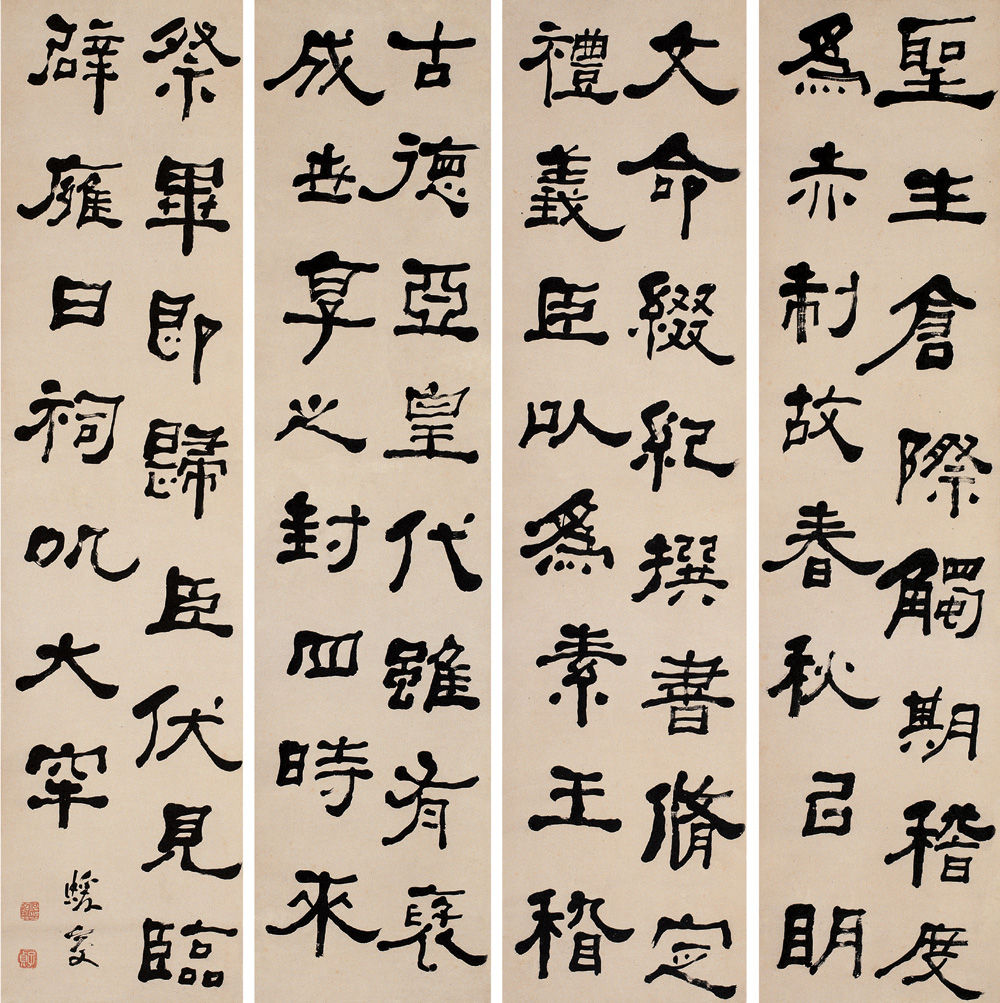 聖生倉際觸期稽度
爲赤制故春秋已明
文命綴紀撰書脩定
禮義臣以爲素王稽
古德亞皇代雖有褒
成世享之封四時來
祭畢即歸臣伏見臨
辟廱日祠孔大牢
蝯叟